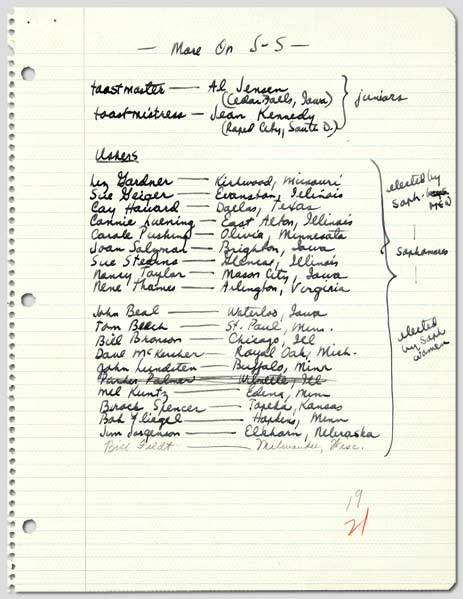 — More On S-S —
toastmaster — Al Jensen
(Cedar Falls, Iowa)
toastmistress — Jean Kennedy
(Rapid City, South D.)
juniors
Ushers
Liz Gardner — Kirkwood, Missouri
Sue Geiger — Evanston, Illinois
Cay Haward — Dallas, Texas
Connie Luening — East Alton, Illinois
Carole Pushing — Olivia, Minnesota
Joan Salzman — Brighton, Iowa
Sue Stevens — Glencoe, Illinois
Nancy Taylor — Mason City, Iowa
Nene Thames — Arlington, Virginia
elected by
Soph.
MEN
Sophomores
John Beal — Waterloo, Iowa
Tom Beech — St. Paul, Minn.
Bill Bronson — Chicago, Ill
Dave McKusher — Royal Oak, Mich.
John Lundsten — Buffalo, Minn
Parker Palmer — Wilmette, Ill
Mel Kuntz — Edina, Minn
Brock Spencer — Topeka, Kansas
Bob Fliegel — Hopkins, Minn
Jim Jorgenson — Elkhorn, Nebraska
Bill Feldt — Milwaukee, Wisc.
elected
by Soph
women
19
21